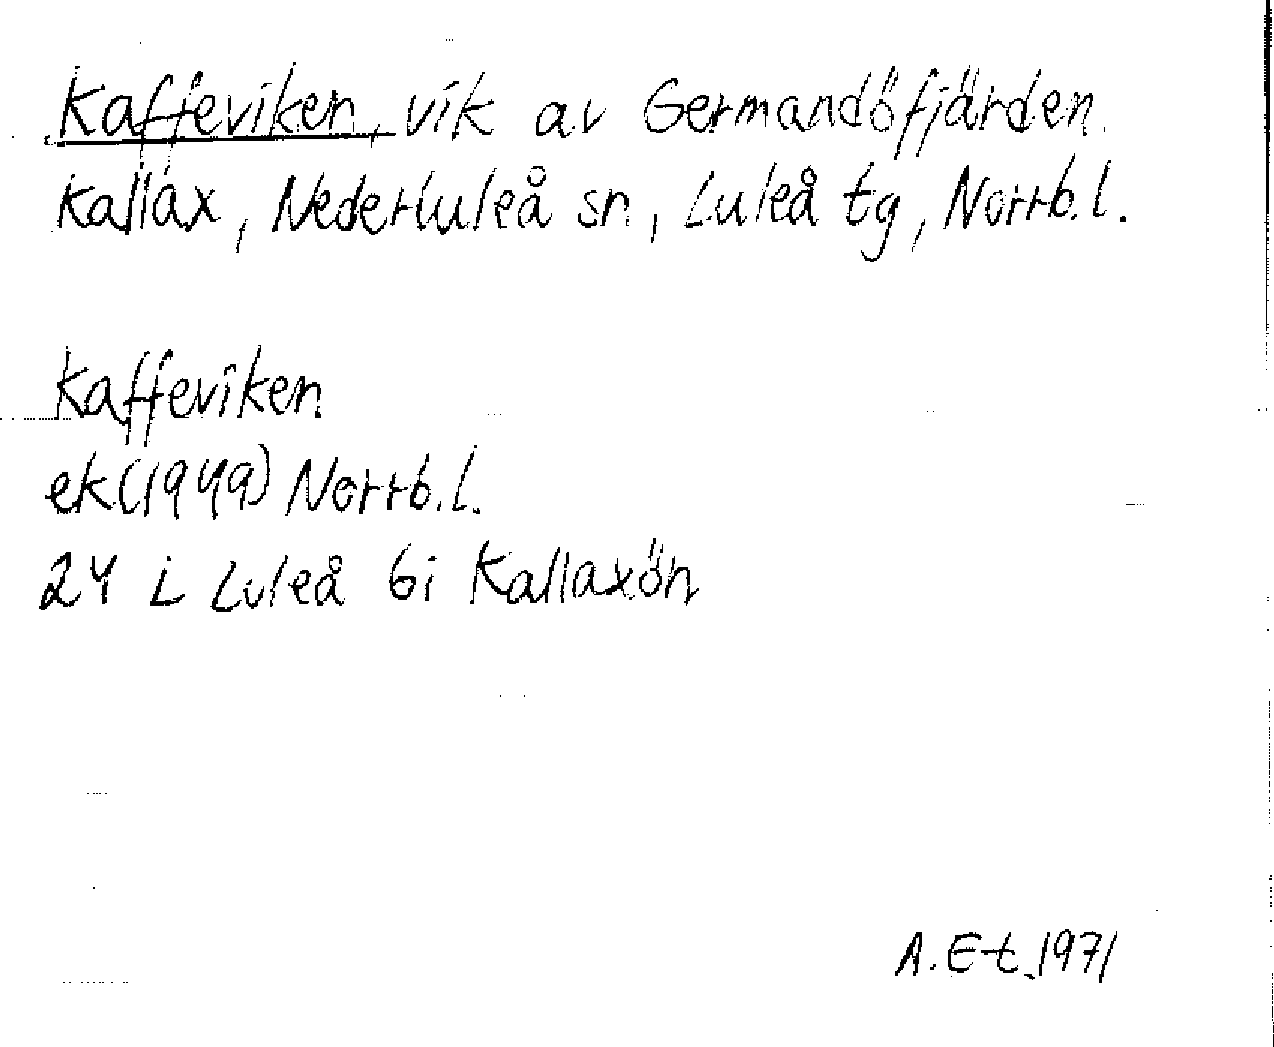 Kaffeviken, vik av Germandöfjärden.
Kallax, Nederluleå sn, Luleå tg, Norrb.l.
Kaffeviken
ek(1949) Norrb.l.
24 L Luleå 6i Kallaxön
A.E-t 1971